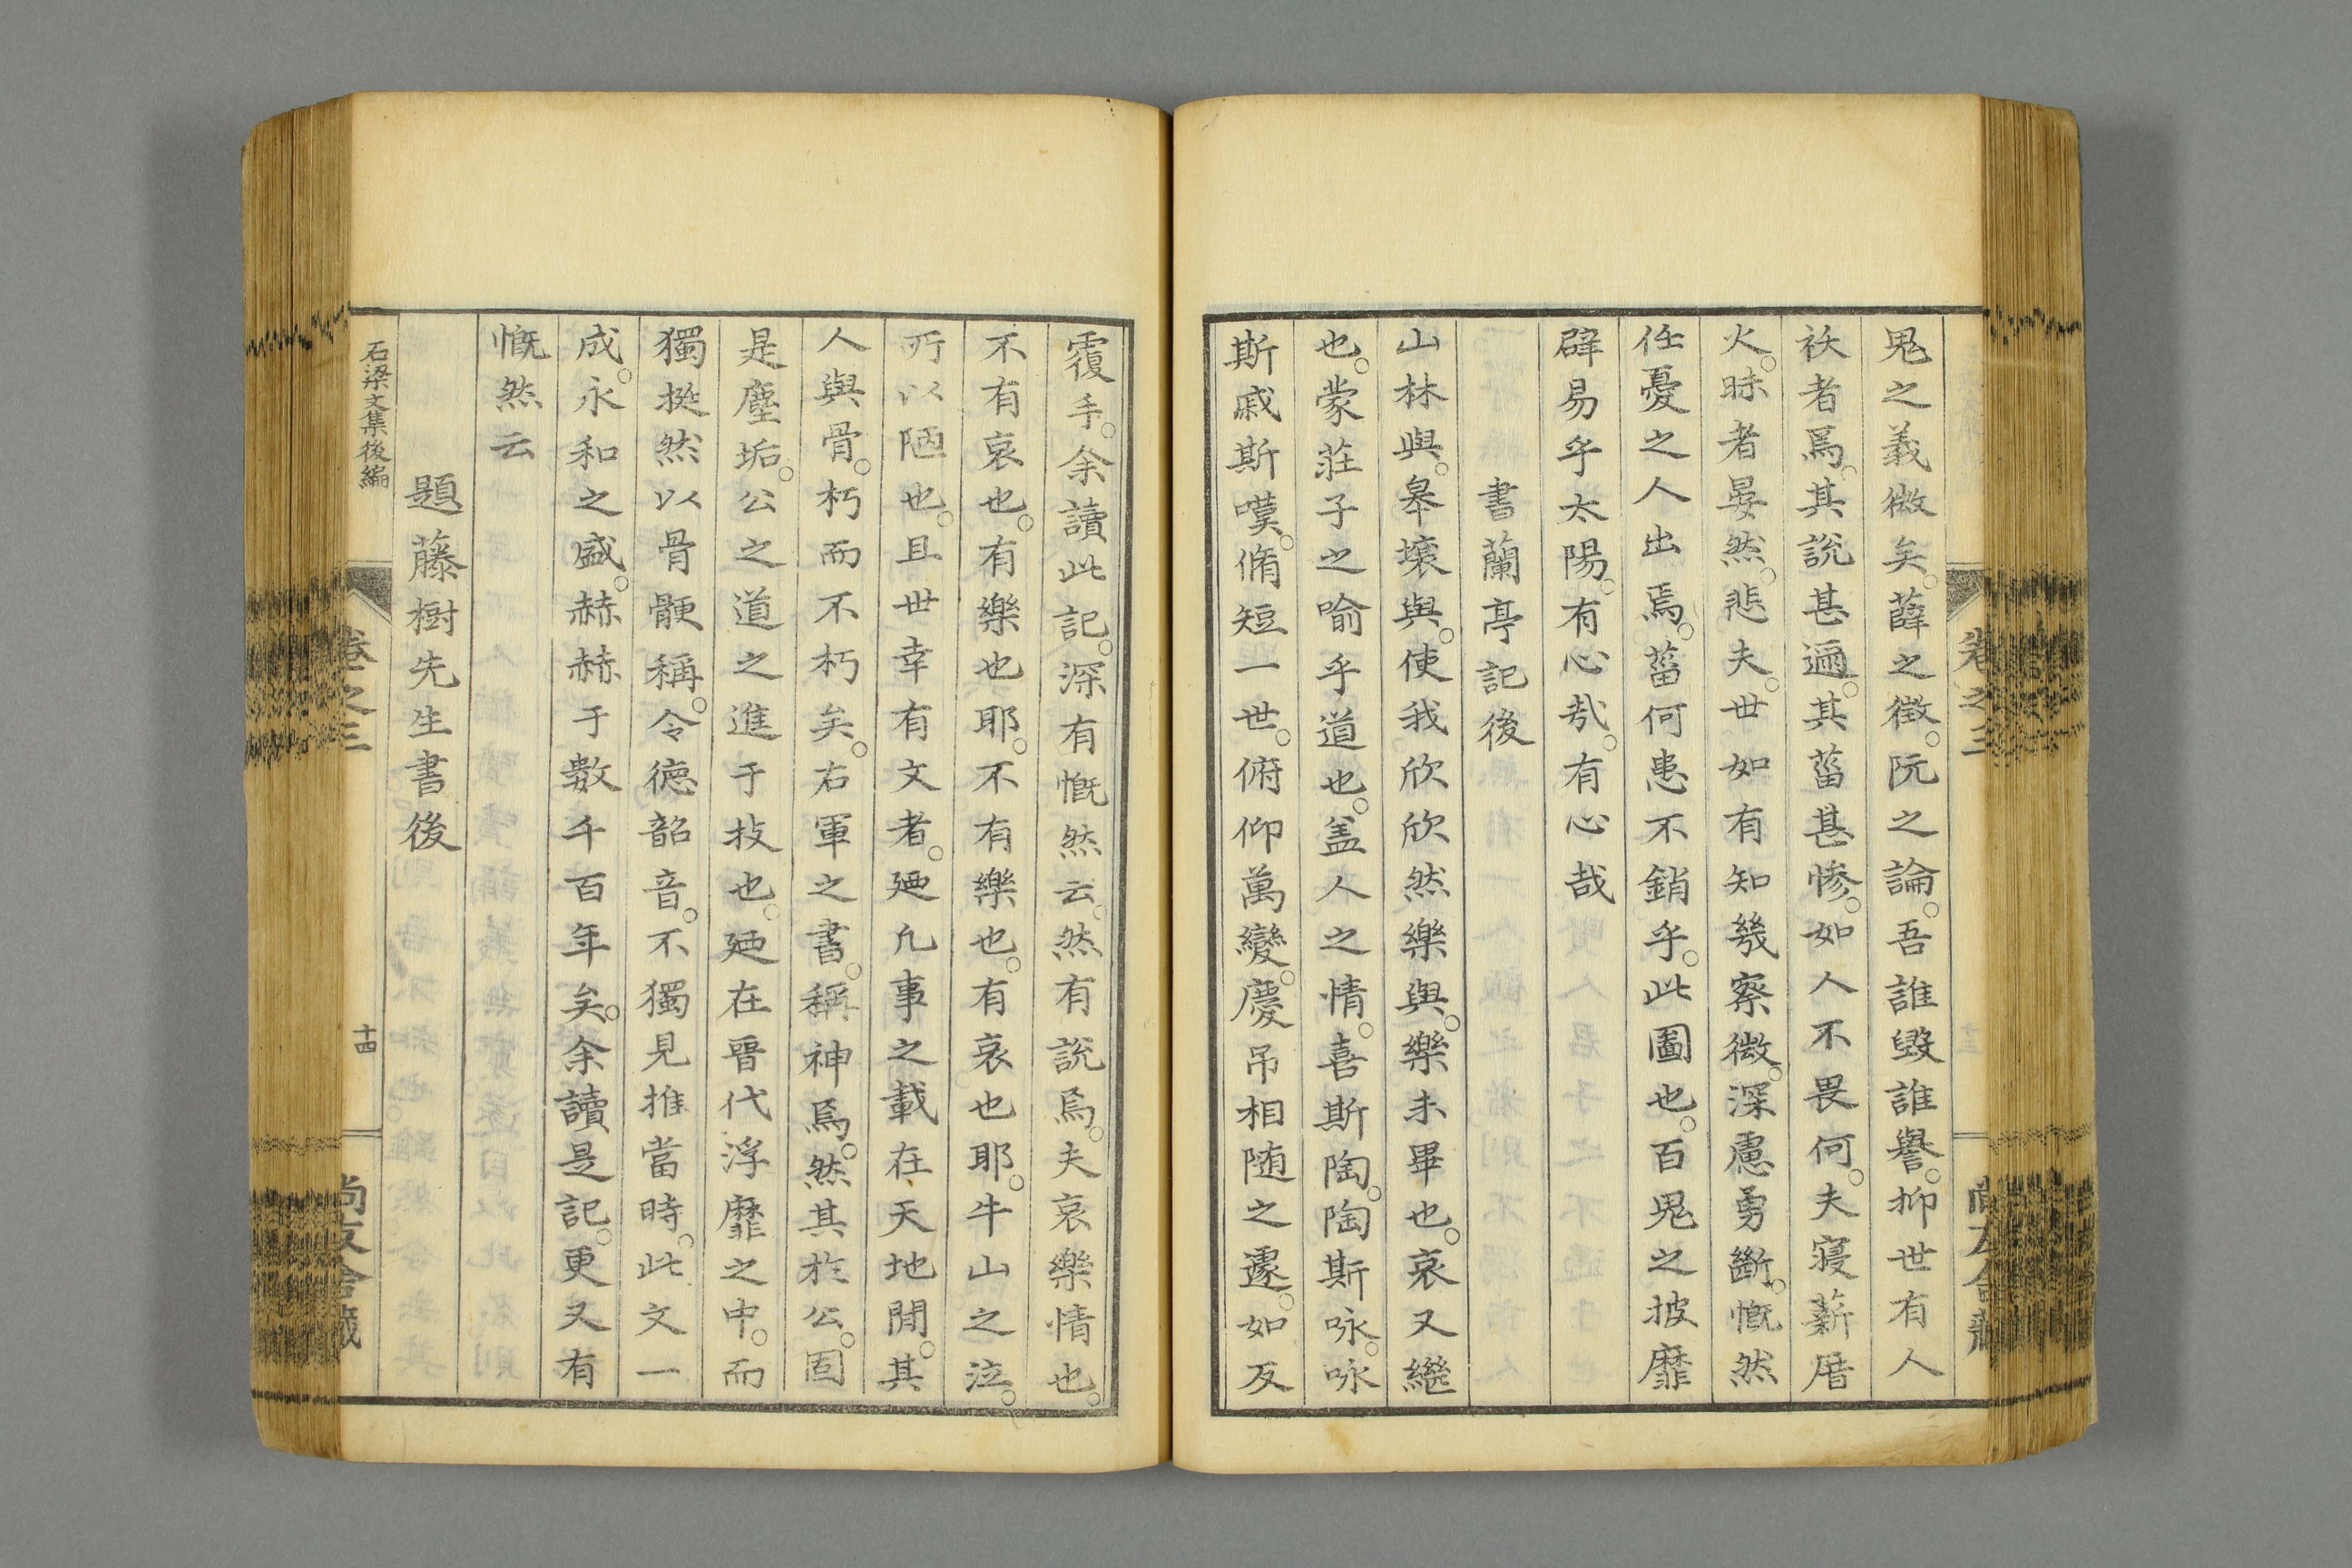 卷之三
尚友舎藏
鬼之義微矣。薜之徴。阮之論。吾誰毀誰譽。抑世有人
袄者焉。其説甚邇。其菑甚惨。如人不畏何。夫寝薪厝
火。昧者晏然。悲夫。世如有知幾察微。深慮勇斷。慨然
任憂之人出焉。菑何患不銷乎。此圖也。百鬼之披靡
辟易乎太陽。有心哉。有心哉
書蘭亭記後
山林與。皋壤與。使我欣欣然樂與。樂未畢也。哀又繼
也。蒙莊子之喻乎道也。盖人之情。喜斯陶。陶斯咏。咏
斯戚斯嘆。脩短一世。俯仰萬變。慶吊相随之遽。如反
覆手。余讀此記。深有慨然云。然有説焉。夫哀樂情也。
不有哀也。有樂也耶。不有樂也。有哀也耶。牛山之泣。
所以陋也。且世幸有文者。廼凡事之載在天地間。其
人與骨。朽而不朽矣。右軍之書。稱神焉。然其於公。固
是塵垢。公之道之進于技也。廼在晋代浮靡之中。而
獨挺然以骨骾稱。令德韶音。不獨見推當時。此文一
成。永和之盛。赫赫于数千百年矣。余讀是記。更又有
慨然云
題藤樹先生書後
石梁文集後編
卷之三
十四
尚友舎藏